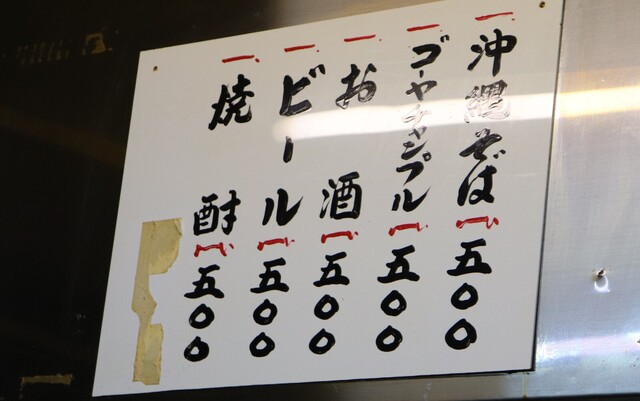 一、沖縄そば 五〇〇
一、ゴーヤチャンプル 五〇〇
一、お酒 五〇〇
一、ビール 五〇〇
一、焼酎 五〇〇